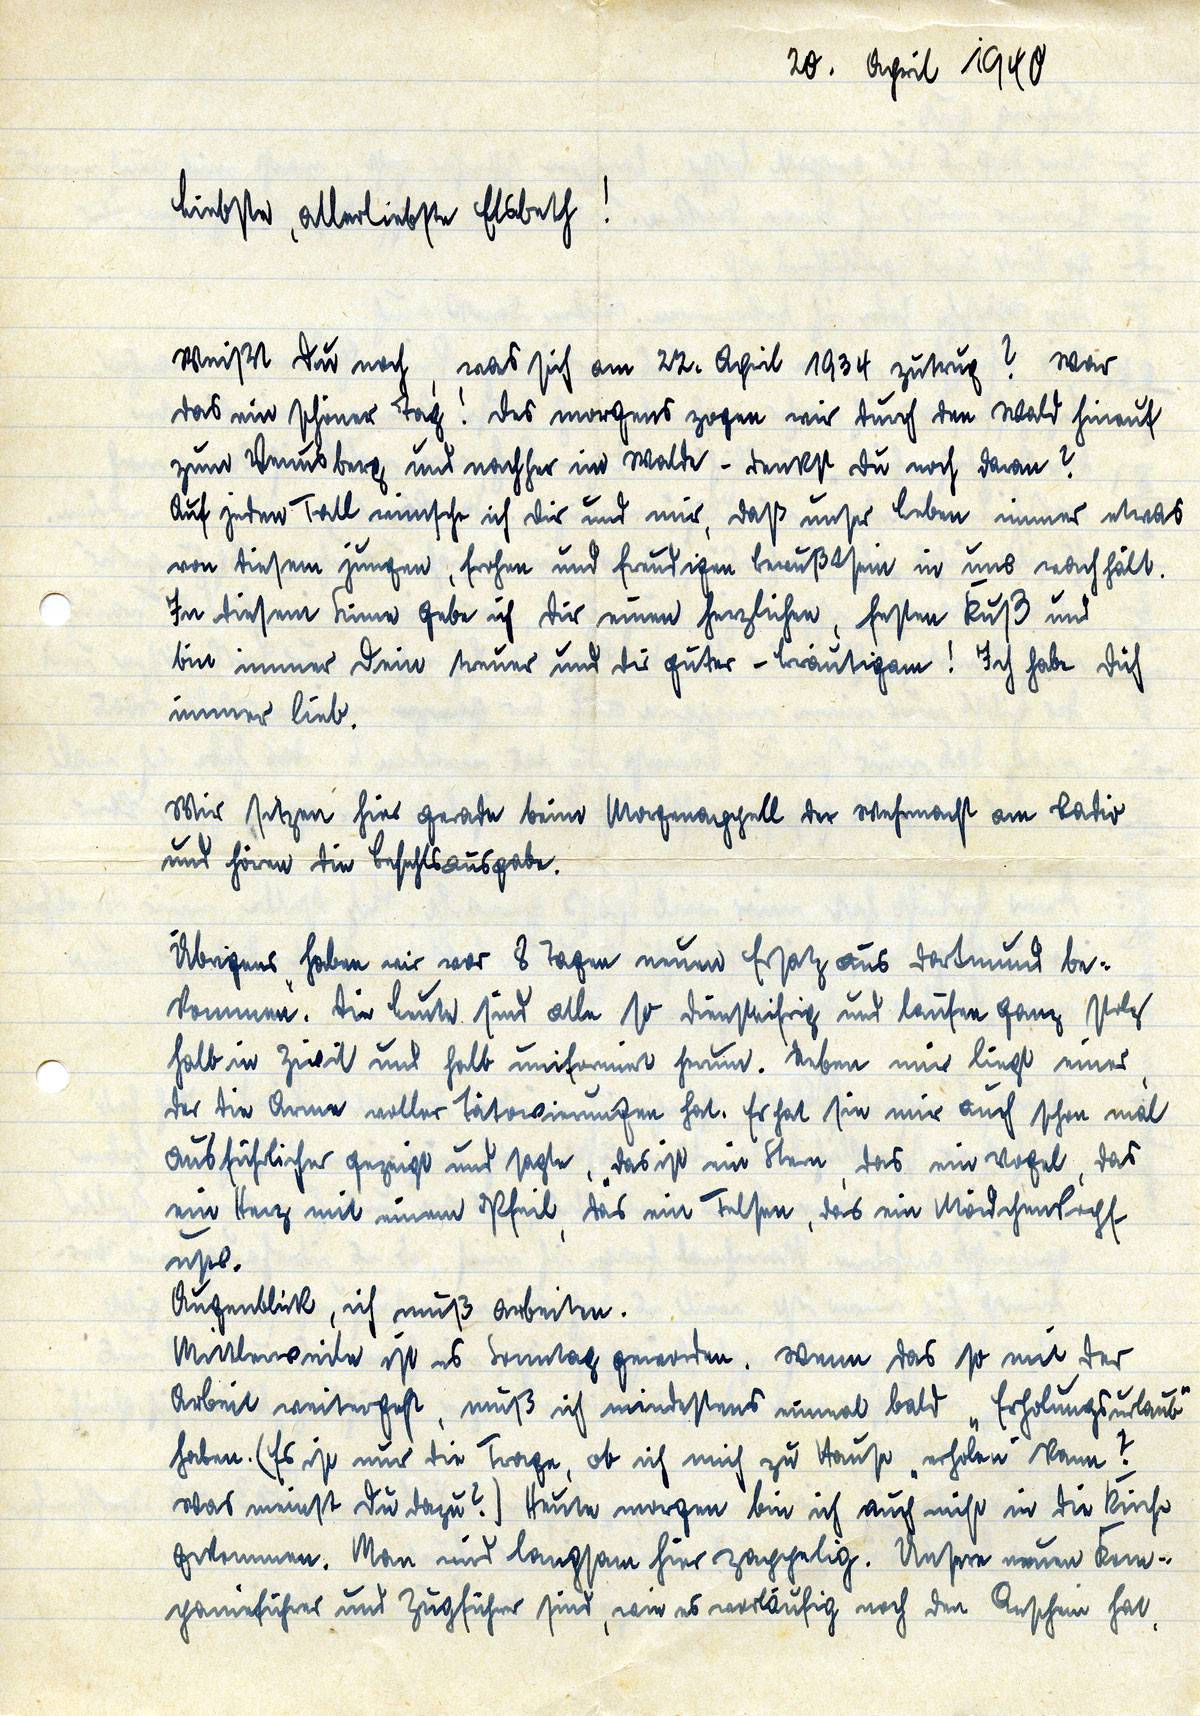 20. April 1940
Liebste, allerliebste Elsbeth!
Weißt Du noch, was sich am 22. April 1934 zutrug? War
das ein schöner Tag! Des morgens zogen wir durch den Wald hinauf
zum Venusberg und nachher im Walde - denkst Du noch daran?
Auf jeden Fall wünsche ich Dir und mir, daß unser Leben immer etwas
von diesem jungen, frohen und freudigen Bewußtsein in uns wach hält.
In diesem Sinne gebe ich Dir einen herzlichen, festen Kuß und
bin immer Dein treuer und Dir guter - Bräutigam! Ich habe Dich
immer lieb.
Wir sitzen hier gerade beim Morgenappell der Wehrmacht am Radio
und hören die Befehlsausgabe.
Übrigens haben wir vor 8 Tagen neuen Ersatz aus Dortmund be-
kommen. Die Leute sind alle so diensteifrig und laufen ganz stolz
halb in Zivil und halb uniformiert herum. Neben mir liegt einer,
der die Arme voller Tätowierungen hat. Er hat sie mir auch schon mal
ausführlicher gezeigt und sagte, "das ist ein Stern, das ein Vogel, das
ein Herz mit einem Pfeil, das ein Felsen, das ein Mädchenkopf
usw.
Augenblick, ich muß arbeiten.
Mittlerweile ist es Sonntag geworden. Wenn das so mit der
Arbeit weitergeht, muß ich mindestens einmal bald „Erholungsurlaub“
haben. (Es ist nur die Frage, ob ich mich zu Hause „erholen“ kann?
Was meinst Du dazu?) Heute morgen bin ich auch nicht in die Kirche
gekommen. Man wird langsam hier zappelig. Unsere neuen Kom-
panieführer und Zugführer sind, wie es vorläufig noch den Anschein hat,